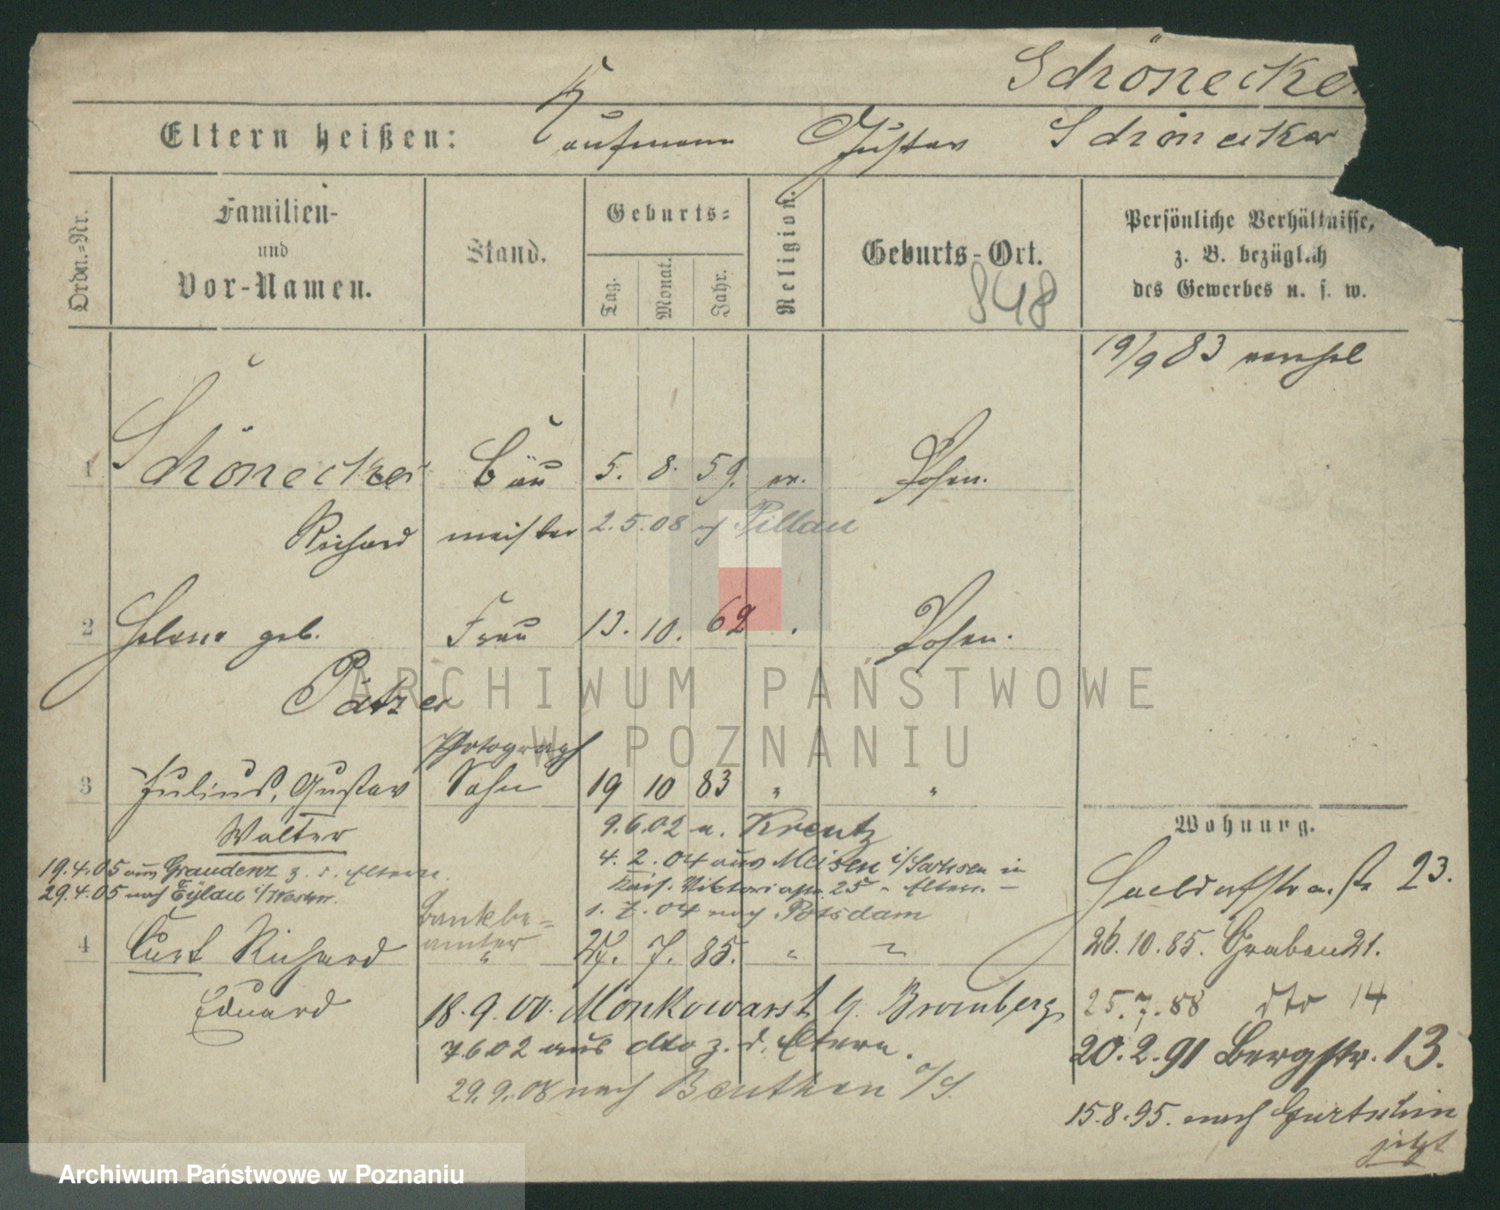 Schönecker
Eltern heißen: Kaufmann Gustav Schönecker
Ordn.=Nr.
Familien-
und
Vor-Namen.
Stand.
Geburts=
Tag.
Monat.
Jahr.
Religion.
Geburts-Ort.
848
Persönliche Verhältnisse,
z. B. bezüglich
des Gewerbes u. s. w.
19/9 83
1 Schönecker Bau 5. 8. 59. ev. Posen.
Richard meister 2.5.08 n/ Pillau
2 Helene geb. Frau 13. 10. 62 Posen.
Pätzer
Photograph
3 Julius, Gustav Sohn 19 10 83 " "
Walter
9.6.02 n. Kreutz
19.4.05 aus Graudenz z. d. Eltern.
4.2.04 aus Meisen i/Sachsen in
29.4.05 nach Eylau i/Westpr.
Kais. Viktoriastr. 25 Eltern.
1.7.04 nach Potsdam
Bankbe=
amter
4 Curt Richard " 27. 7. 85. " "
Eduard
18.9.00. Monkowarst b. Bromberg
7.6.02 aus dto z. d. Eltern.
29.9.08 nach Beuthen o/S.
Wohnung.
23.
26.10.85. Graben 21.
25.7.88 dto 14
20.2.91 Bergstr. 13.
15.8.95. nach Gurtschin
jetzt
ARCHIWUM PAŃSTWOWE
W POZNANIU
Archiwum Państwowe w Poznaniu